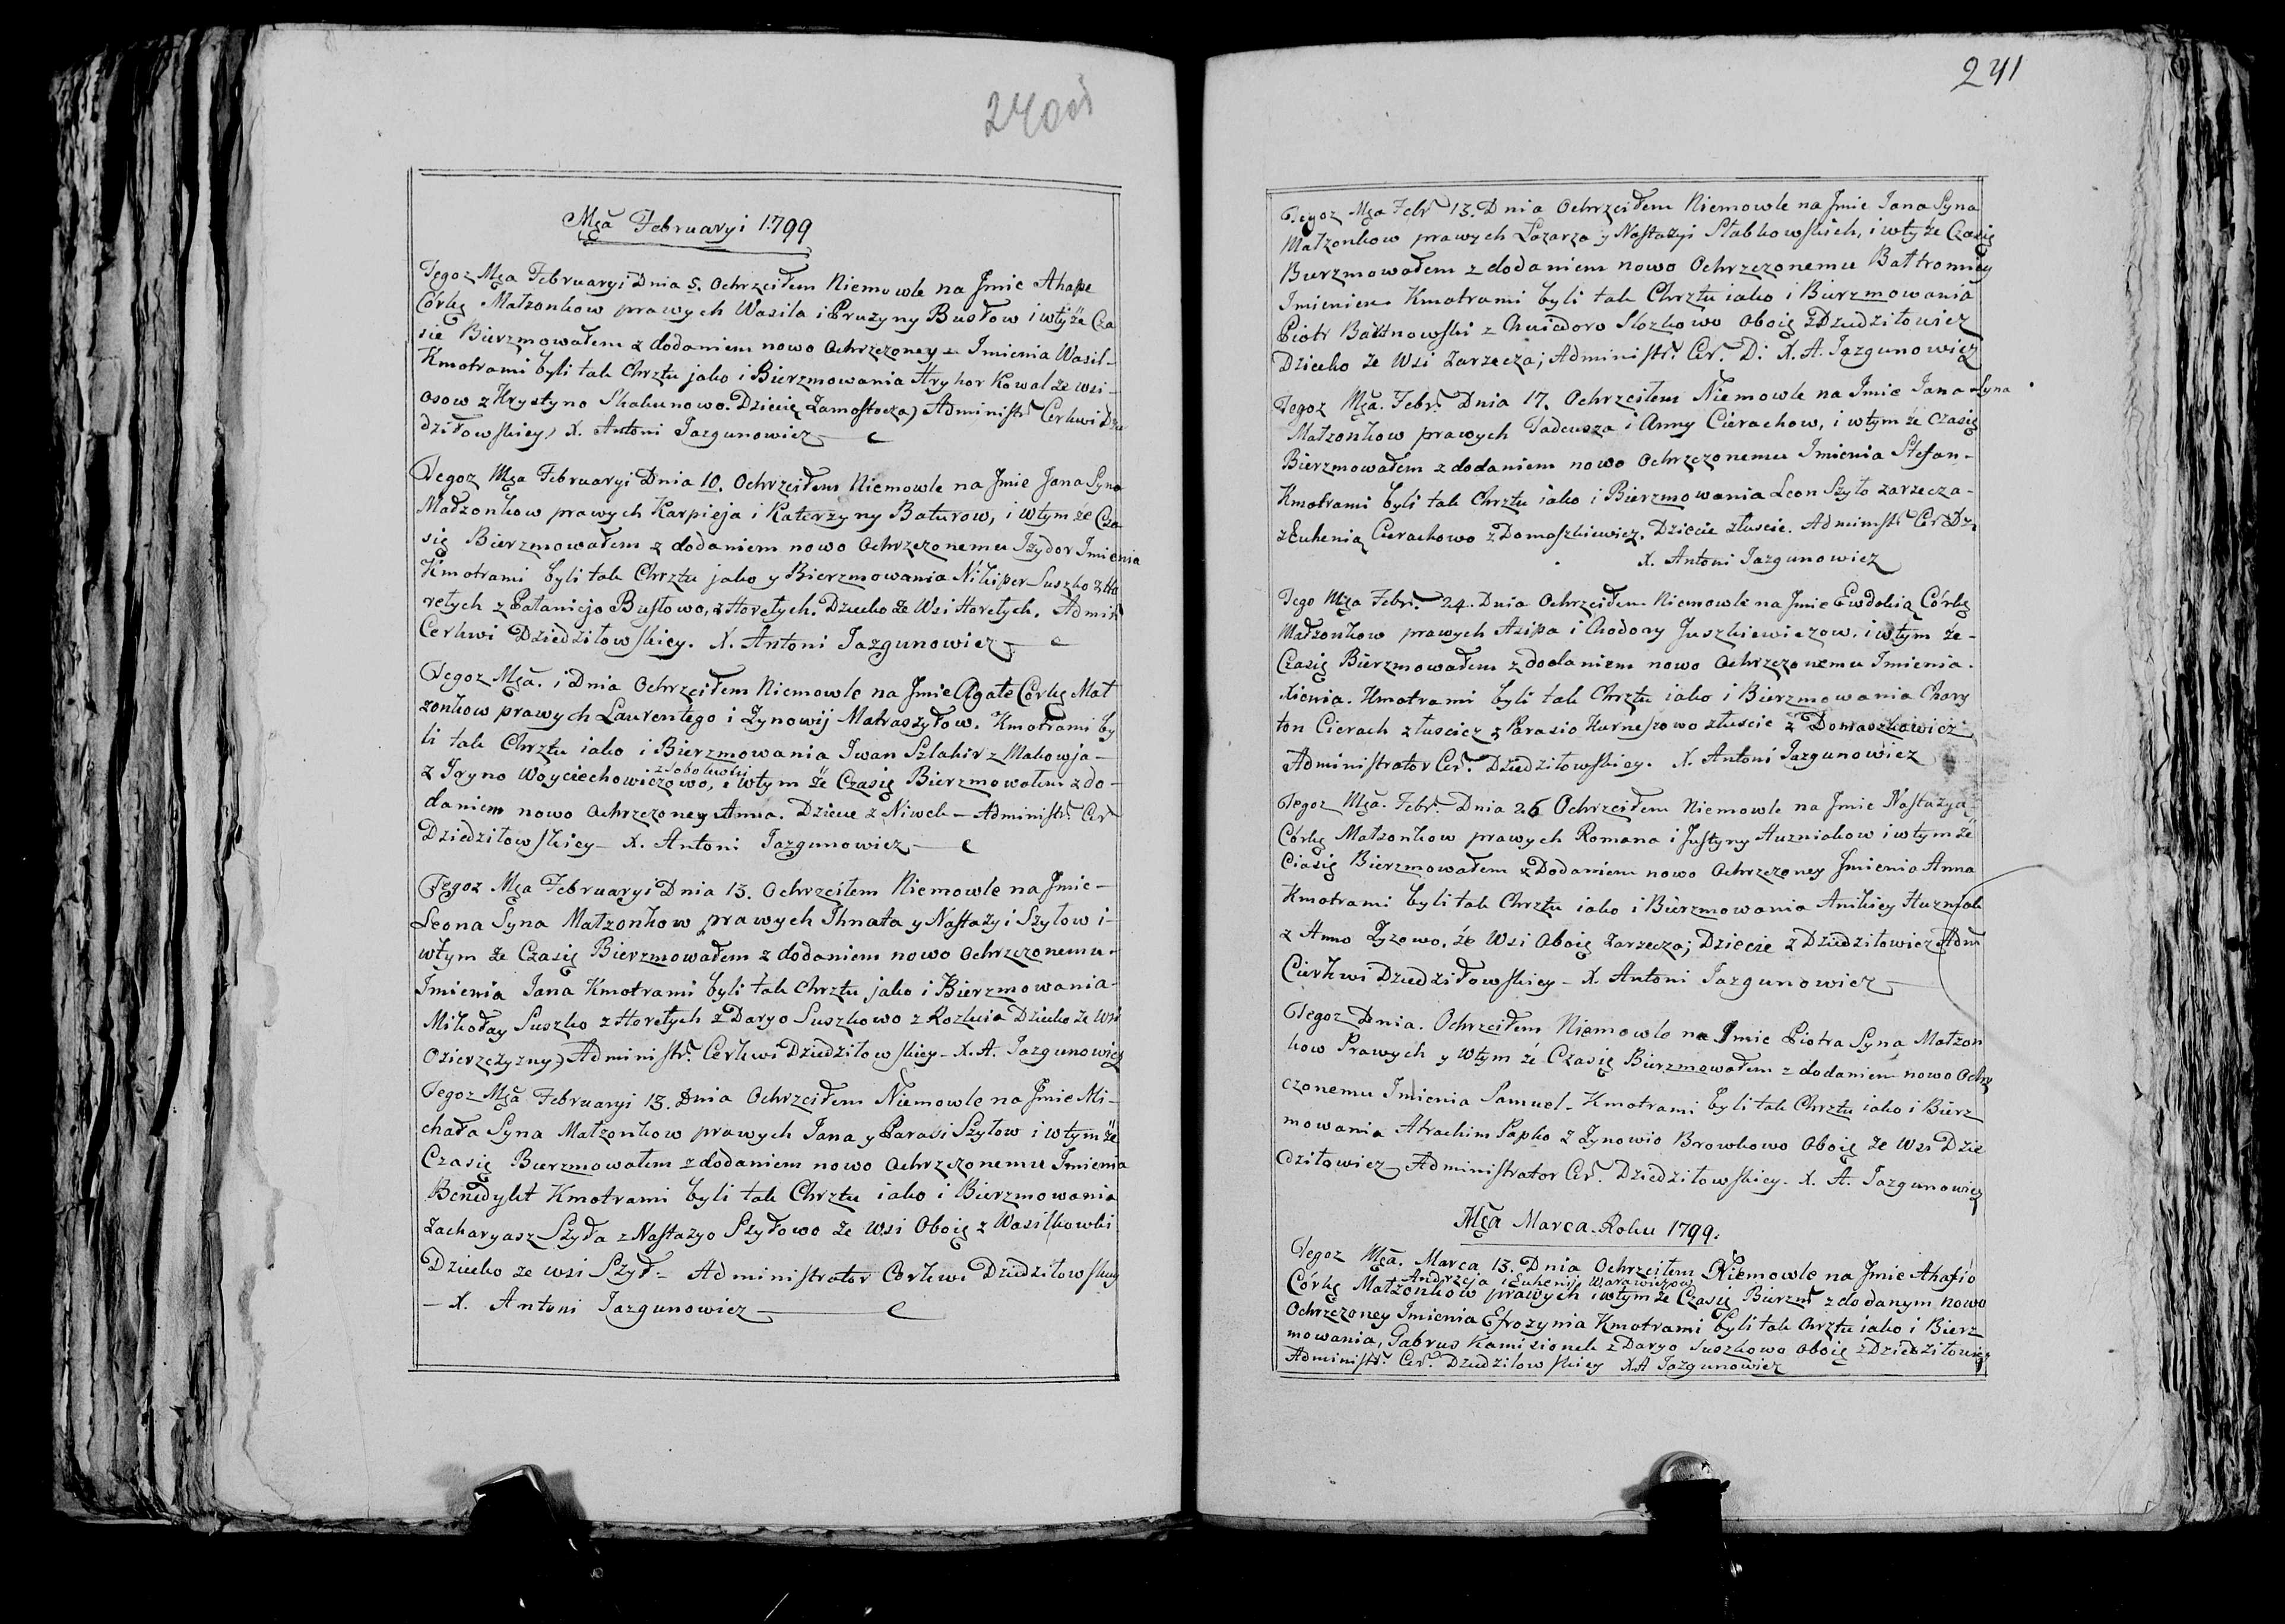 240 об
Mca Februaryi 1799
Tegoz Mca Februaryi Dnia 5. Ochrzciłem Niemowle na Jmie Ahape
Córkę Małzonkow prawych Wasila i Pruzyny Busłow i wtÿże Cza
sie Bierzmowałem z dodaniem nowo Ochrzczoney Imienia Wasil-
Kmotrami byli tak Chrztu jako i Bierzmowania Hryhor Kowal ze wsi-
Osow z Krystyno Skakunowo. Dziecię Zamostocza) Administr Cerkwi Dzie
dziłowskiey) X. Antoni Jazgunowicz
Tegoz Mca Februaryi Dnia 10. Ochrzciłem Niemowle na Jmie Jana Syna
Małzonkow prawych Karpieja i Katerzyny Baturow, i wtym ze Cza
się Bierzmowałem z dodaniem nowo Ochrzczonemu Izydor Imienia
Kmotrami byli tak Chrztu jako y Bierzmowania Nikiper Suszko z Ho
retych z Pataniejo Busłowo, z Horetych. Dziecko ze Wsi Horetych. Admin
Cerkwi Dziedziłowskiey. X. Antoni Jazgunowicz
Tegoz Mca. i Dnia Ochrzciłem Niemowle na Jmie Agate Corkę Mał
zonkow prawych Laurentego i Zynowij Matraszyłow. Kmotrami by
li tak Chrztu iako i Bierzmowania Iwan Szlahir z Makowja-
z Jryno Woyciechowiczowo, i wtym że Czasię Bierzmowałem z do-
daniem nowo Ochrzczoney Anna. Dziecie z Niwek - Administr. Cer
Dziedziłowskiey - X. Antoni Jazgunowicz
Tegoz Mca Februaryi Dnia 13. Ochrzciłem Niemowle na Jmie-
Leona Syna Małzonkow prawych Ihnata y Nastazyi Szyłow i-
wtym ze Czasię Bierzmowałem z dodaniem nowo Ochrzczonemu-
Imienia Jana Kmotrami byli tak Chrztu jako i Bierzmowania-
Mikołay Suszko z Horetych z Daryo Suszkowo z Rozkuia Dziecko ze Wsi
Ozierzczyzny) Administr. Cerkwi Dziedziłowskiey - X. A. Jazgunowicz
Tegoz Mca Februaryi 13. Dnia Ochrzciłem Niemowle na Jmie Mi-
chała Syna Małzonkow prawych Jana y Parasi Szyłow i wtym że
Czasię Bierzmowałem z dodaniem nowo Ochrzczonemu Imienia
Benedykt Kmotrami byli tak Chrztu iako i Bierzmowania
Zacharyasz Szyła z Nastazyo Szyłowo ze wsi Oboię z Wasilkowki
Dziecko ze wsi Szył- Administrator Cerkwi Dziedziłowskiey
- X. Antoni Jazgunowicz
241
Tegoz Mca Febr 13. Dnia Ochrzciłem Niemowle na Jmie Jana Syna
Małzonkow prawych Łazarza y Nastazyi Słabkowskich, i wtyże Czasię
Bierzmowałem z dodaniem nowo Ochrzczonemu Bałtromiey
Imieniem Kmotrami byli tak Chrztu iako i Bierzmowania
Piotr z Chwiedoro Slozkowo Oboię z Dziedziłowicz
Dziecko ze Wsi Zarzecza; Administr. Cer. D: X. A. Jazgunowicz
Tegoz Mca. Febr. Dnia 17. Ochrzciłem Niemowle na Jmie Jana Syna
Małzonkow prawych Tadeusza i Anny Cierachow, i wtym że czasię
Bierzmowałem z dodaniem nowo Ochrzczonemu Imienia Stefan-
Kmotrami byli tak Chrztu iako i Bierzmowania Leon Szyło zarzecza-
z Euhenią Cierachowo z Domaszkiewicz. Dziecie złuscie. Administr Cer Dz.
X. Antoni Jazgunowicz
Tego Mca Febr. 24. Dnia Ochrzciłem Niemowle na Jmie Ewdokią Córkę
Małzonkow prawych Asipa i Chodory Juszkiewiczow. i wtym że-
Czasię Bierzmowałem z dodaniem nowo Ochrzczonemu Imienia.
Xienia. Kmotrami byli tak Chrztu iako i Bierzmowania Chary
ton Cierach złuscicz z Parasio Kurneszowo złuscie z Domaszkawicz
Administrator Cer. Dziedziłowskiey. X. Antoni Jazgunowicz
Tegoz Mca. Febr. Dnia 26 Ochrzciłem Niemowle na Jmie Nastazya
Córkę Małzonkow prawych Romana i Justyny Huzniakow i wtym że
Ciasię Bierzmowałem z Dodaniem nowo Ochrzczoney Jmienia Anna
Kmotrami byli tak Chrztu iako i Bierzmowania Anikiey Huzniak
z Anno Zyzowo, że Wsi Oboię Zarzecza; Dziecie z Dziedziłowicz Adm
Cierkwi Dziedziłowskiey - X. Antoni Jazgunowicz
Tegoz Dnia. Ochrzciłem Niemowle na Jmie Piotra Syna Małzon
kow Prawych y wtym że Czasię Bierzmowałem z dodaniem nowo Ochrz
czonemu Imienia Samuel. Kmotrami byli tak Chrztu iako i Bierz
mowania Atrachim Papko z Zynowio Browkowo Oboię ze Wsi Dzie
dziłowicz Administrator Cer. Dziedziłowskiey. X. A. Jazgunowicz
Mca Marca Roku 1799.
Tegoz Mca. Marca 13. Dnia Ochrzciłem Niemowle na Jmie Ahafio
Andrzeja i Euhenij Warawiczow
Córkę Małzonkow prawych i wtym że Czasię Bierzm z dodanym nowo
Ochrzczoney Imienia Efrozynia Kmotrami byli tak Chrztu iako i Bierz
mowania, Gabrus Kamisionek z Daryo Suszkowo Oboię z Dziedziłowicz
Administr. Cer. Dziedziłowskiey X A Jazgunowicz